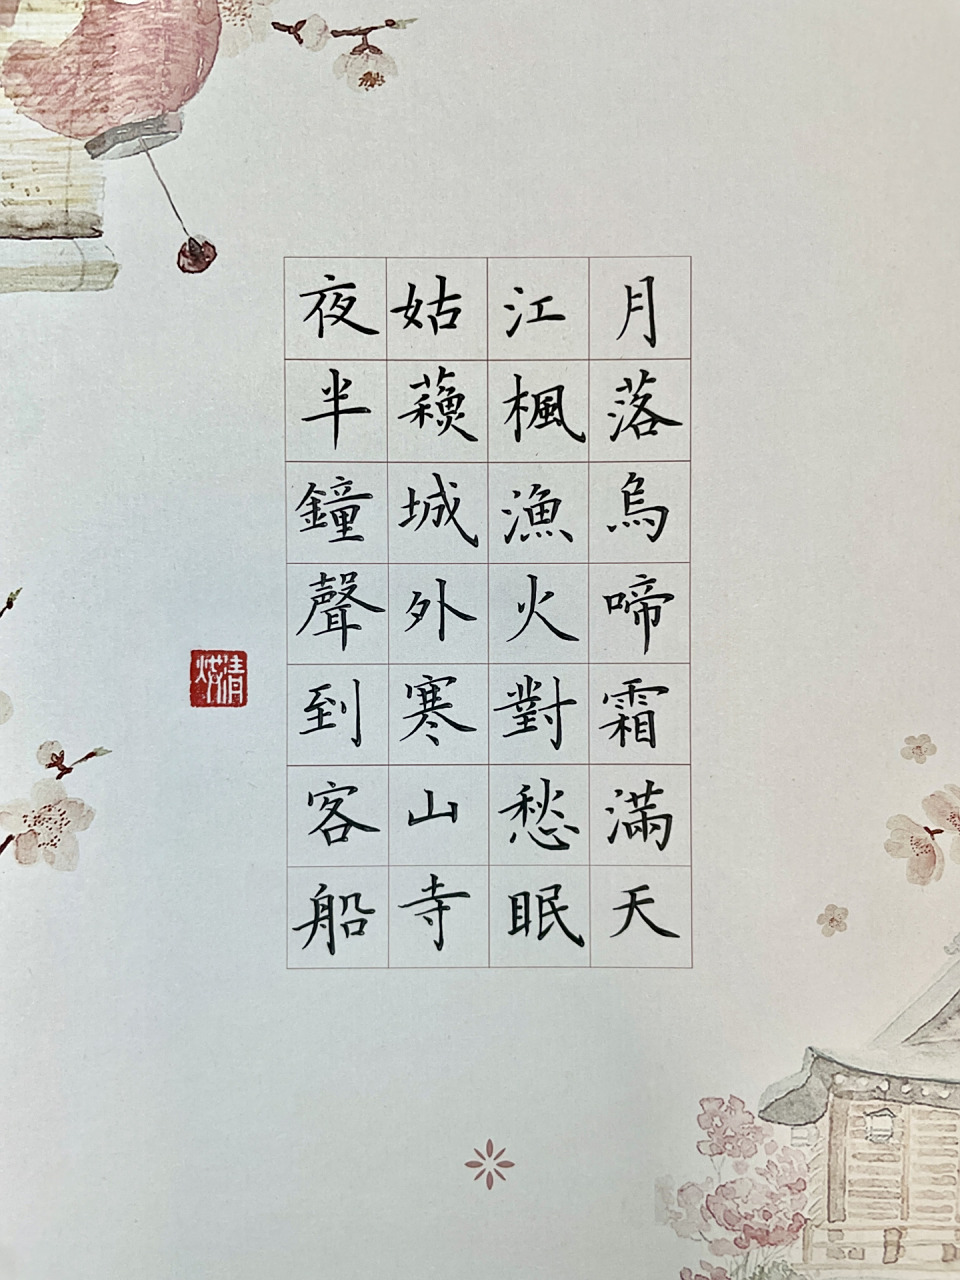 月落烏啼霜滿天
江楓漁火對愁眠
姑蘓城外寒山寺
夜半鐘聲到客船